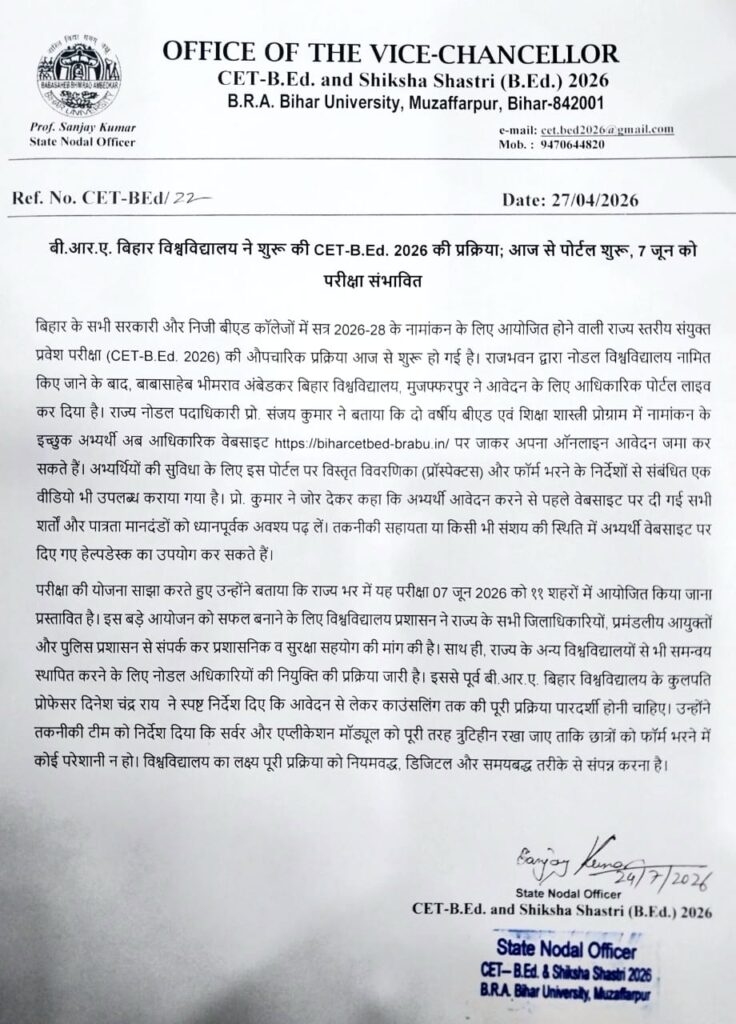 BABASAHEB BHIMRAO AMBEDKAR
BIHAR UNIVERSITY
OFFICE OF THE VICE-CHANCELLOR
CET-B.Ed. and Shiksha Shastri (B.Ed.) 2026
B.R.A. Bihar University, Muzaffarpur, Bihar-842001
Prof. Sanjay Kumar
State Nodal Officer
e-mail: cet.bed2026@gmail.com
Mob. : 9470644820
Ref. No. CET-BEd/22
Date: 27/04/2026
बी.आर.ए. बिहार विश्वविद्यालय ने शुरू की CET-B.Ed. 2026 की प्रक्रिया; आज से पोर्टल शुरू, 7 जून को
परीक्षा संभावित
बिहार के सभी सरकारी और निजी बीएड कॉलेजों में सत्र 2026-28 के नामांकन के लिए आयोजित होने वाली राज्य स्तरीय संयुक्त
प्रवेश परीक्षा (CET-B.Ed. 2026) की औपचारिक प्रक्रिया आज से शुरू हो गई है। राजभवन द्वारा नोडल विश्वविद्यालय नामित
किए जाने के बाद, बाबासाहेब भीमराव अंबेडकर बिहार विश्वविद्यालय, मुजफ्फरपुर ने आवेदन के लिए आधिकारिक पोर्टल लाइव
कर दिया है। राज्य नोडल पदाधिकारी प्रो. संजय कुमार ने बताया कि दो वर्षीय बीएड एवं शिक्षा शास्त्री प्रोग्राम में नामांकन के
इच्छुक अभ्यर्थी अब आधिकारिक वेबसाइट https://biharcetbed-brabu.in/ पर जाकर अपना ऑनलाइन आवेदन जमा कर
सकते हैं। अभ्यर्थियों की सुविधा के लिए इस पोर्टल पर विस्तृत विवरणिका (प्रॉस्पेक्टस) और फॉर्म भरने के निर्देशों से संबंधित एक
वीडियो भी उपलब्ध कराया गया है। प्रो. कुमार ने जोर देकर कहा कि अभ्यर्थी आवेदन करने से पहले वेबसाइट पर दी गई सभी
शर्तों और पात्रता मानदंडों को ध्यानपूर्वक अवश्य पढ़ लें। तकनीकी सहायता या किसी भी संशय की स्थिति में अभ्यर्थी वेबसाइट पर
दिए गए हेल्पडेस्क का उपयोग कर सकते हैं।
परीक्षा की योजना साझा करते हुए उन्होंने बताया कि राज्य भर में यह परीक्षा 07 जून 2026 को ११ शहरों में आयोजित किया जाना
प्रस्तावित है। इस बड़े आयोजन को सफल बनाने के लिए विश्वविद्यालय प्रशासन ने राज्य के सभी जिलाधिकारियों, प्रमंडलीय आयुक्तों
और पुलिस प्रशासन से संपर्क कर प्रशासनिक व सुरक्षा सहयोग की मांग की है। साथ ही, राज्य के अन्य विश्वविद्यालयों से भी समन्वय
स्थापित करने के लिए नोडल अधिकारियों की नियुक्ति की प्रक्रिया जारी है। इससे पूर्व बी.आर.ए. बिहार विश्वविद्यालय के कुलपति
प्रोफेसर दिनेश चंद्र राय ने स्पष्ट निर्देश दिए कि आवेदन से लेकर काउंसलिंग तक की पूरी प्रक्रिया पारदर्शी होनी चाहिए। उन्होंने
तकनीकी टीम को निर्देश दिया कि सर्वर और एप्लीकेशन मॉड्यूल को पूरी तरह त्रुटिहीन रखा जाए ताकि छात्रों को फॉर्म भरने में
कोई परेशानी न हो। विश्वविद्यालय का लक्ष्य पूरी प्रक्रिया को नियमवद्ध, डिजिटल और समयबद्ध तरीके से संपन्न करना है।
Sanjay Kumar
24/7/2026
State Nodal Officer
CET-B.Ed. and Shiksha Shastri (B.Ed.) 2026
State Nodal Officer
CET– B.Ed. & Shiksha Shastri 2026
B.R.A. Bihar University, Muzaffarpur